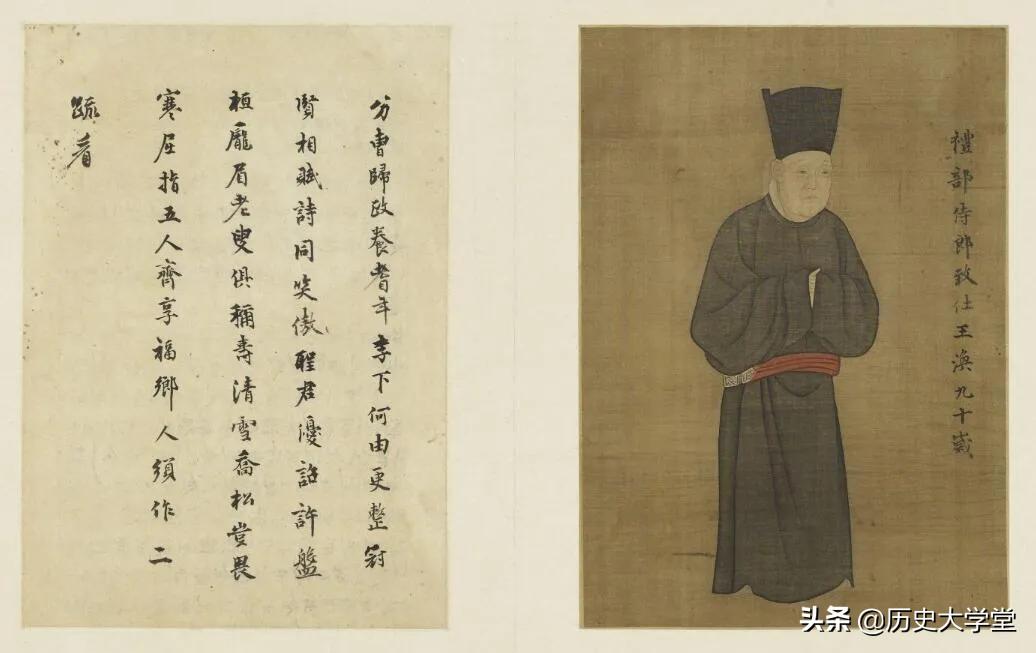 禮部侍郎致仕王渙九十歲
分曹歸政養耆年李下何由更整冠
賢相賦詩同笑傲聖君優詔許盤
桓龐眉老叟俱稱壽清雪喬松豈畏
寒屈指五人齊享福鄉人須作二
疏看
头条 @历史大学堂